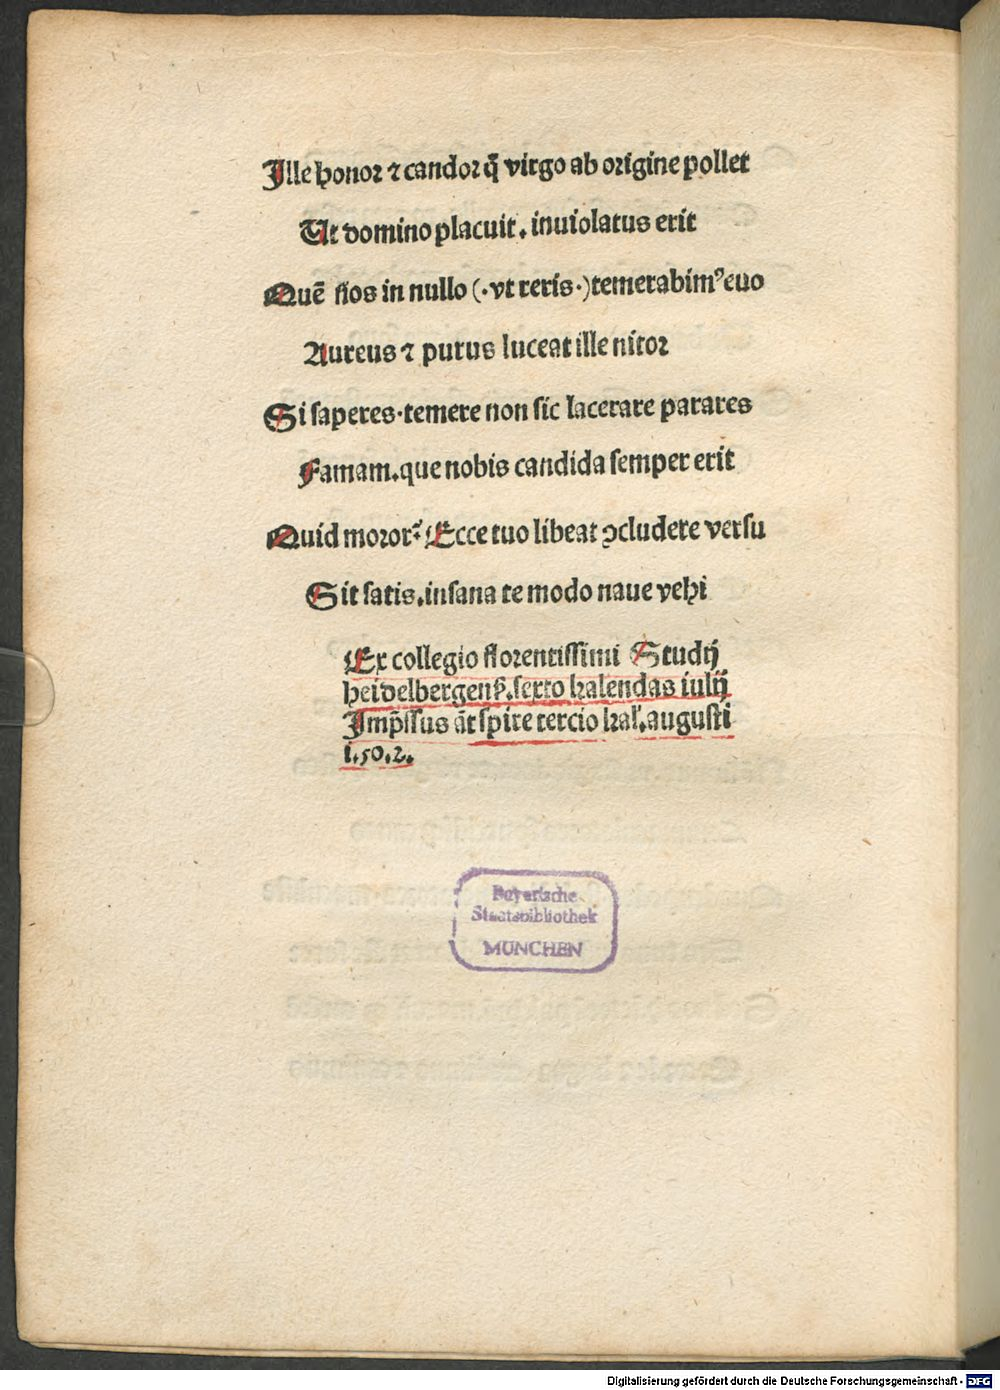 Ille honor ⁊ candor q̃ virgo ab origine pollet
Ut domino placuit. inuiolatus erit
Quē nos in nullo (·vt reris·) temerabimꝰ euo
Aureus ⁊ purus luceat ille nitor
Si saperes·temere non sic lacerare parares
Famam.que nobis candida semper erit
Quid moror? Ecce tuo libeat ꝯcludere versu
Sit satis.insana te modo naue vehi
Ex collegio florentissimi Studij
heidelbergenꝭ.sexto kalendas iulij
Imp̃ssus āt spire tercio kal'.augusti
1.50.2.
Bayerische
Staatsbibliothek
MÜNCHEN
Digitalisierung gefördert durch die Deutsche Forschungsgemeinschaft - DFG